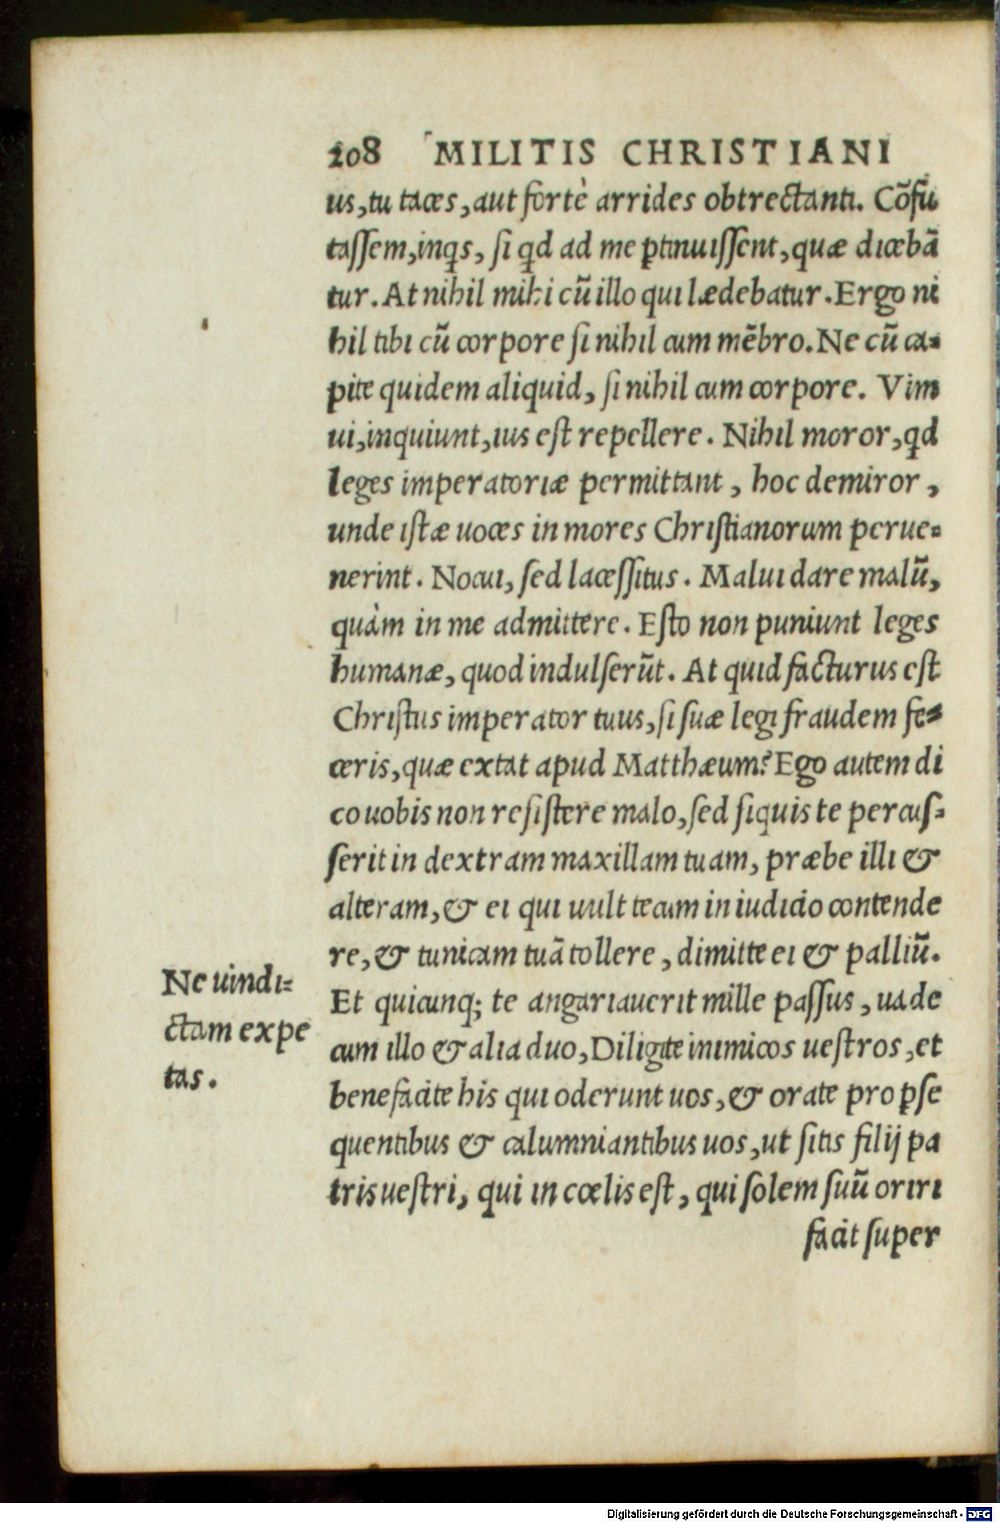 208 MILITIS CHRISTIANI
us, tu taces, aut fortè arrides obtrectanti. Cõfu
tassem, inqs, si qd ad me ꝑtinuissent, quæ dicebã
tur. At nihil mihi cũ illo qui lædebatur. Ergo ni
hil tibi cũ corpore si nihil cum mẽbro. Ne cũ ca-
pite quidem aliquid, si nihil cum corpore. Vim
ui, inquiunt, ius est repellere. Nihil moror, qd
leges imperatoriæ permittant, hoc demiror,
unde istæ uoces in mores Christianorum perue-
nerint. Nocui, sed lacessitus. Malui dare malũ,
quàm in me admittere. Esto non puniunt leges
humanæ, quod indulserũt. At quid facturus est
Christus imperator tuus, si suæ legi fraudem fe-
ceris, quæ extat apud Matthæum? Ego autem di
co uobis non resistere malo, sed siquis te percus-
serit in dextram maxillam tuam, præbe illi &
alteram, & ei qui uult tecum in iudicio contende
re, & tunicam tuã tollere, dimitte ei & palliũ.
Et quicunq; te angariauerit mille passus, uade
cum illo & alia duo, Diligite inimicos uestros, et
benefacite his qui oderunt uos, & orate pro ꝑse
quentibus & calumniantibus uos, ut sitis filij pa
tris uestri, qui in cœlis est, qui solem suũ oriri
facit super
Ne uindi-
ctam expe
tas.
Digitalisierung gefördert durch die Deutsche Forschungsgemeinschaft - DFG